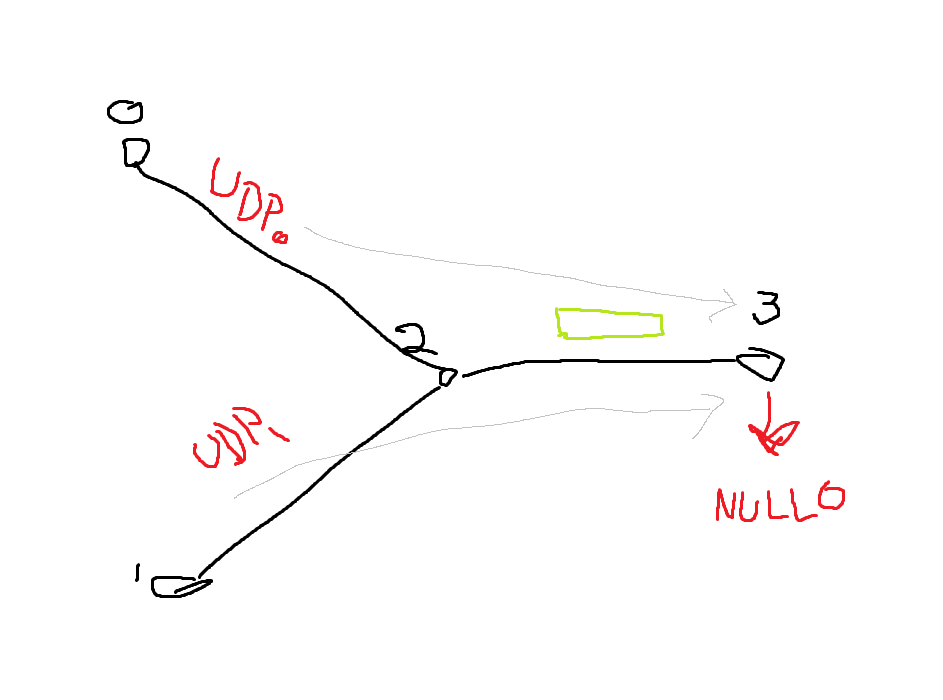 0
UDP0
2
3
UDP1
NULL0
1